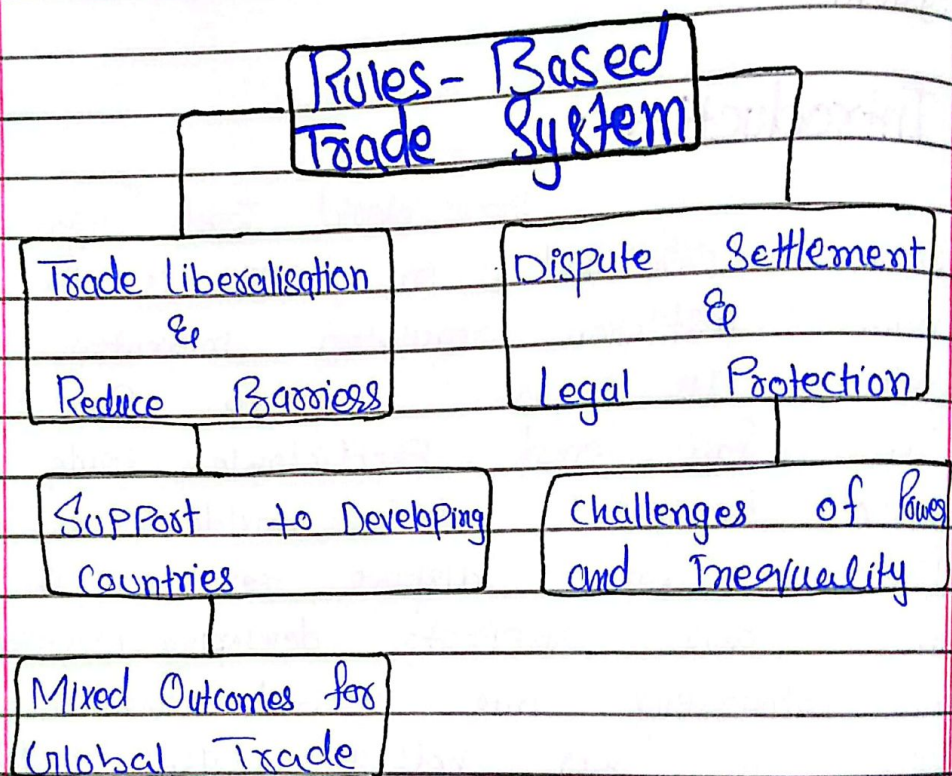 Rules-Based
Trade System
Trade liberalisation
&
Reduce Barriers
Dispute Settlement
&
Legal Protection
Support to Developing
Countries
Challenges of Power
and Inequality
Mixed Outcomes for
Global Trade